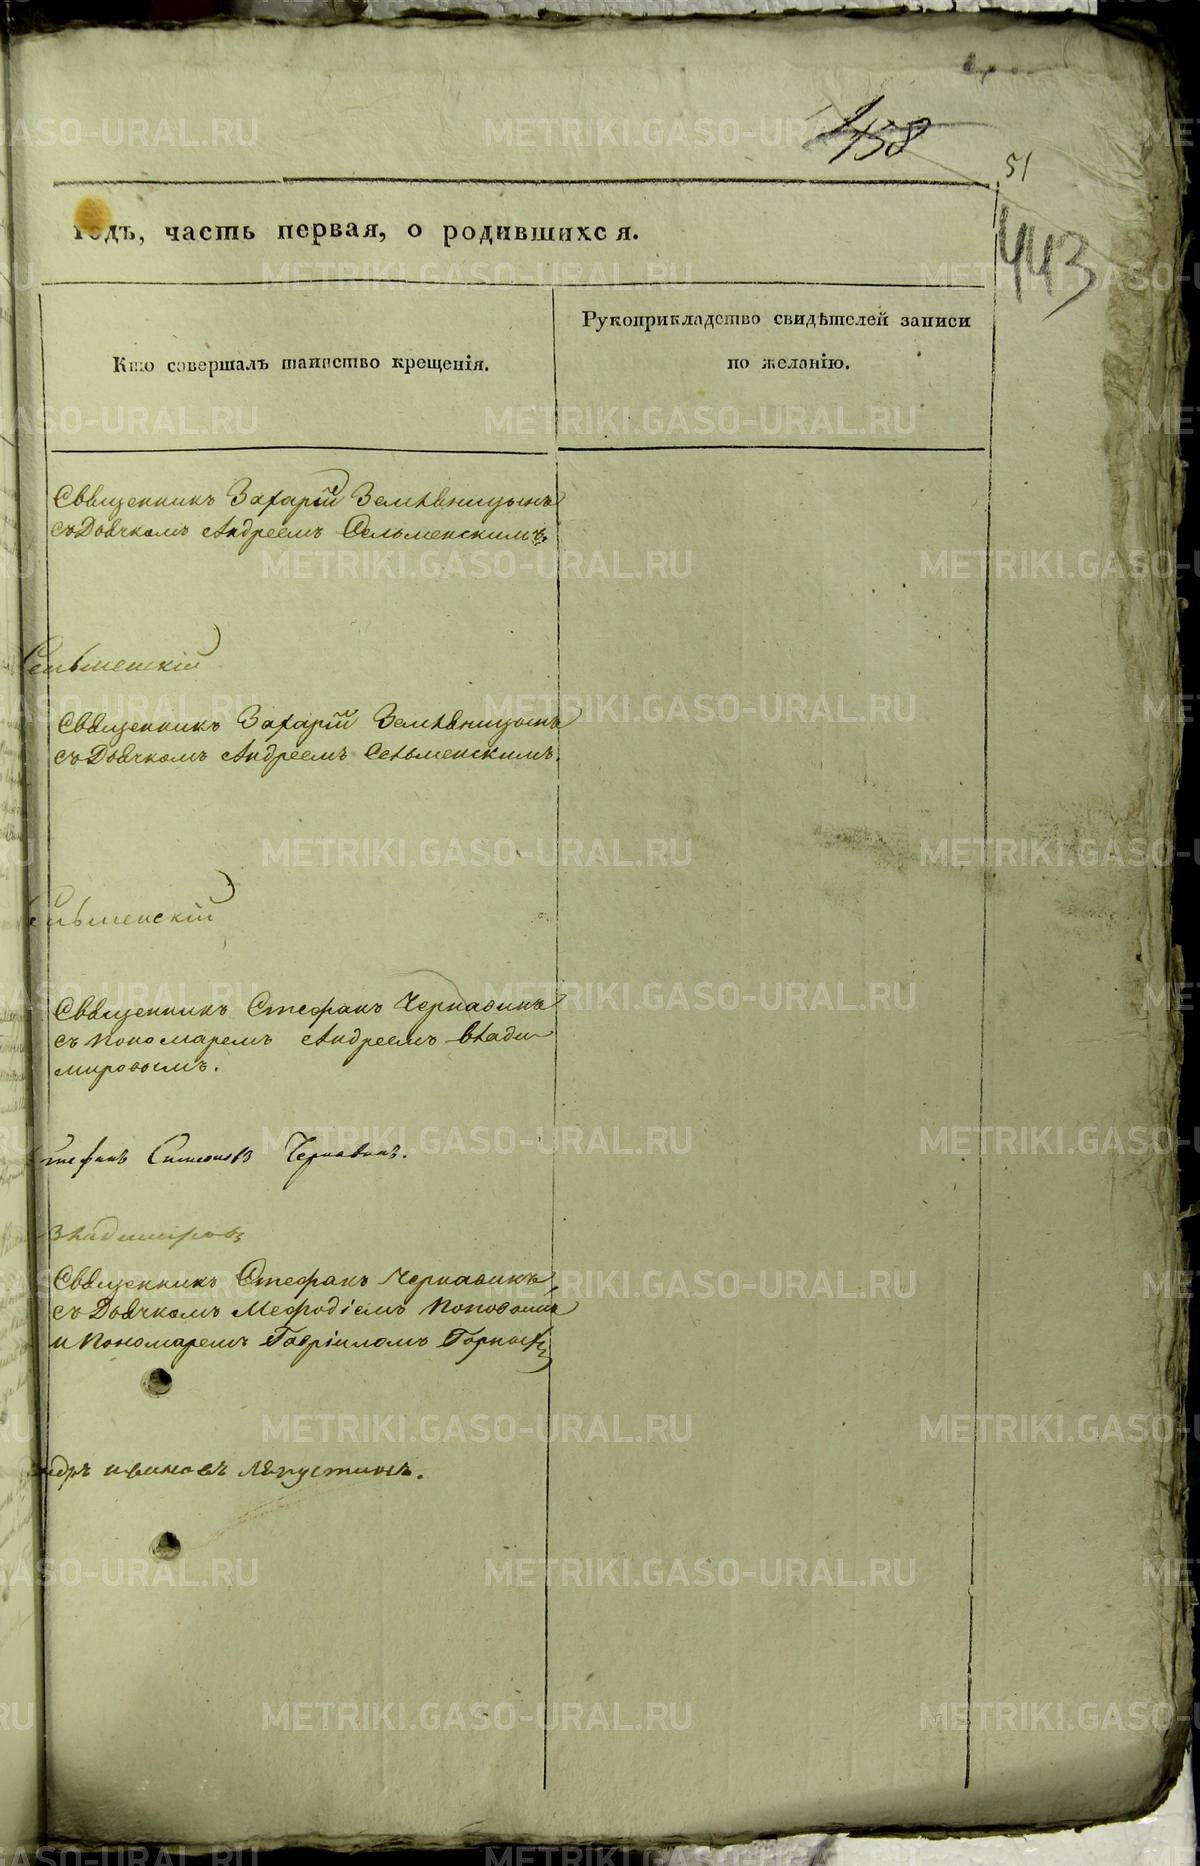 458
51
443
Годъ, часть первая, о родившихся.
Кто совершалъ таинство крещенія.
Рукоприкладство свидѣтелей записи
по желанію.
Священникъ Захарій Землѣницынъ
съ Дьячкомъ Андреемъ Сельменскимъ.
Сельменскій
Священникъ Захарій Землѣницынъ
съ Дьячкомъ Андреемъ Сельменскимъ.
Сельменскій
Священникъ Стефанъ Чернавинъ
съ Пономаремъ Андреемъ Влади
мировымъ.
Стефанъ Симеоновъ Чернавинъ.
Владимировъ
Священникъ Стефанъ Чернавинъ,
съ Дьячкомъ Мефодіемъ Поповымъ
и Пономаремъ Гавріиломъ
ивановъ
METRIKI.GASO-URAL.RU